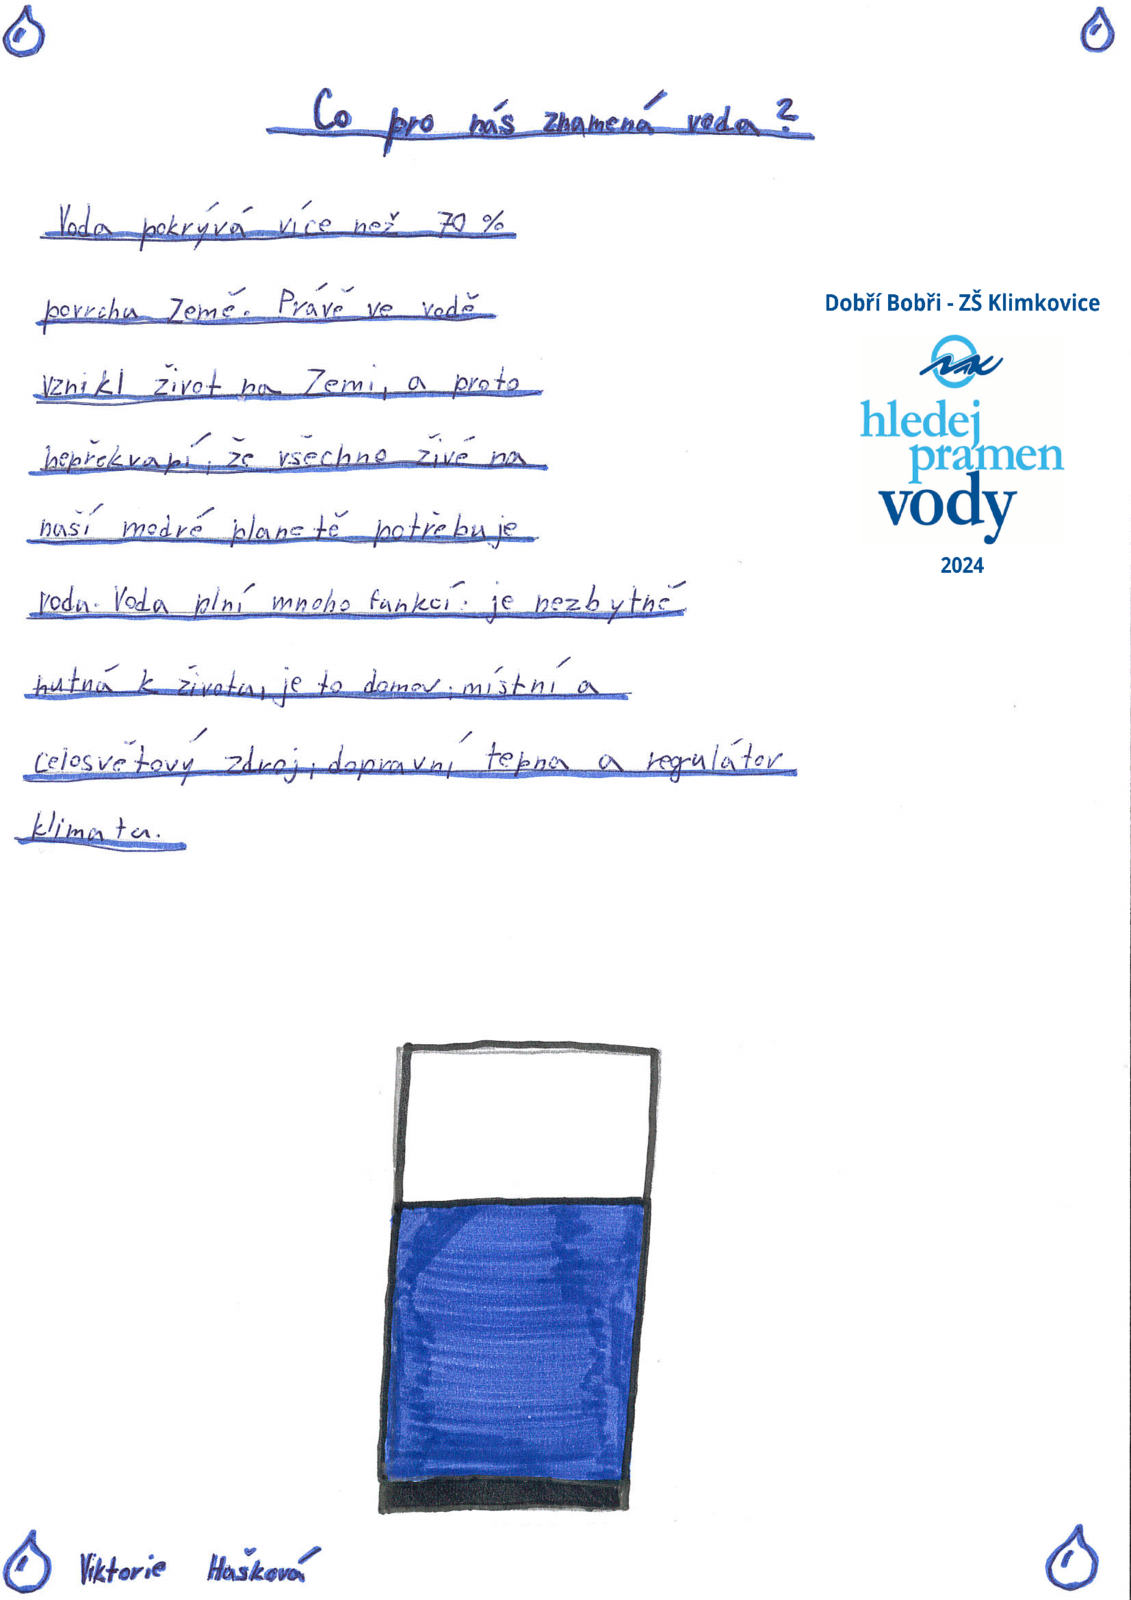 Co pro nás znamená voda?
Voda pokrývá více než 70 %
povrchu Země. Právě ve vodě
vznikl život na Zemi, a proto
nepřekvapí, že všechno živé na
naší modré planetě potřebuje
vodu. Voda plní mnoho funkcí: je nezbytně
nutná k životu, je to domov, místní a
celosvětový zdroj, dopravní tepna a regulátor
klimatu.
Dobří Bobři - ZŠ Klimkovice
hledej
pramen
vody
2024
Viktorie Hašková